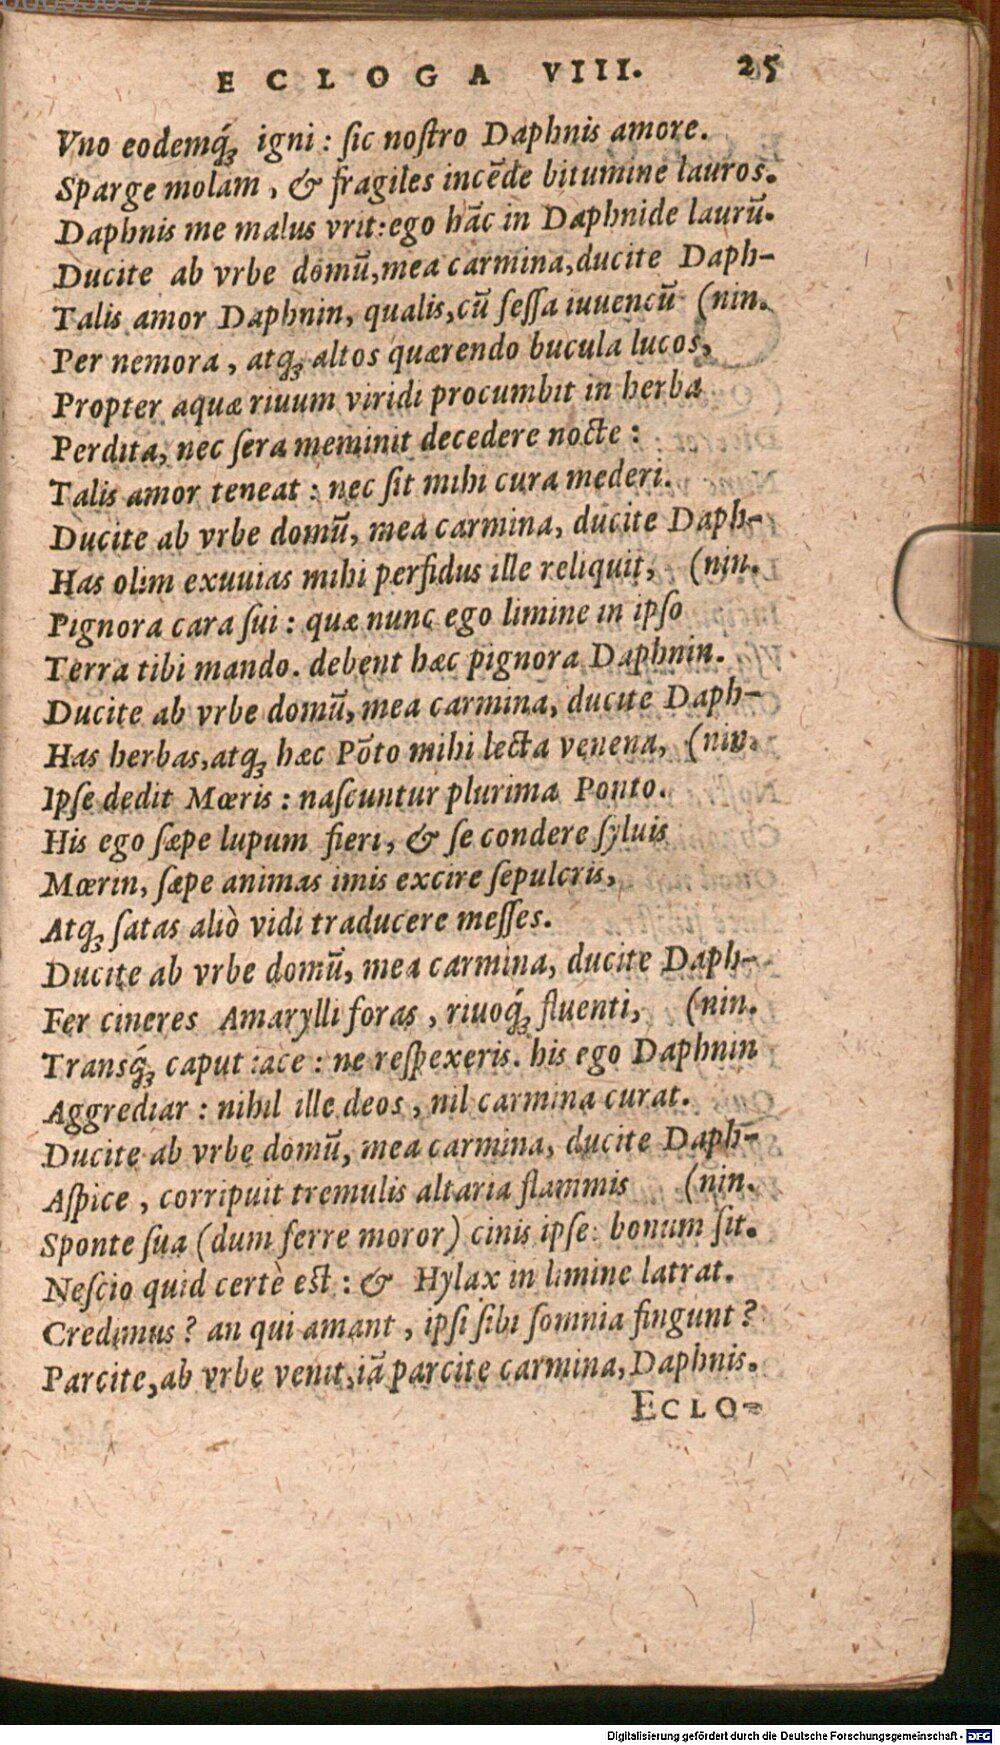 ECLOGA VIII. 25
Vno eodemq́ꝫ igni : ſic noſtro Daphnis amore.
Sparge molam, & fragiles incēde bitumine lauros.
Daphnis me malus vrit: ego hāc in Daphnide laurū.
Ducite ab vrbe domū, mea carmina, ducite Daph-
Talis amor Daphnin, qualis, cū feſſa iuuencū (nin.
Per nemora, atqꝫ altos quærendo bucula lucos,
Propter aquæ riuum viridi procumbit in herba
Perdita, nec ſera meminit decedere nocte :
Talis amor teneat : nec ſit mihi cura mederi.
Ducite ab vrbe domū, mea carmina, ducite Daph-
Has olim exuuias mihi perfidus ille reliquit, (nin.
Pignora cara ſui : quæ nunc ego limine in ipſo
Terra tibi mando. debent hæc pignora Daphnin.
Ducite ab vrbe domū, mea carmina, ducite Daph-
Has herbas, atqꝫ hæc Pōto mihi lecta venena, (nin.
Ipſe dedit Mœris : naſcuntur plurima Ponto.
His ego ſæpe lupum fieri, & ſe condere ſyluis
Mœrin, ſæpe animas imis excire ſepulcris,
Atqꝫ ſatas aliò vidi traducere meſſes.
Ducite ab vrbe domū, mea carmina, ducite Daph-
Fer cineres Amarylli foras, riuoq́ꝫ fluenti, (nin.
Transq́ꝫ caput iace : ne reſpexeris. his ego Daphnin
Aggrediar : nihil ille deos, nil carmina curat.
Ducite ab vrbe domū, mea carmina, ducite Daph-
Aſpice, corripuit tremulis altaria flammis (nin.
Sponte ſua (dum ferre moror) cinis ipſe: bonum ſit.
Neſcio quid certè eſt : & Hylax in limine latrat.
Credimus ? an qui amant, ipſi ſibi ſomnia fingunt ?
Parcite, ab vrbe venit, iā parcite carmina, Daphnis.
ECLO-
Digitalisierung gefördert durch die Deutsche Forschungsgemeinschaft - DFG